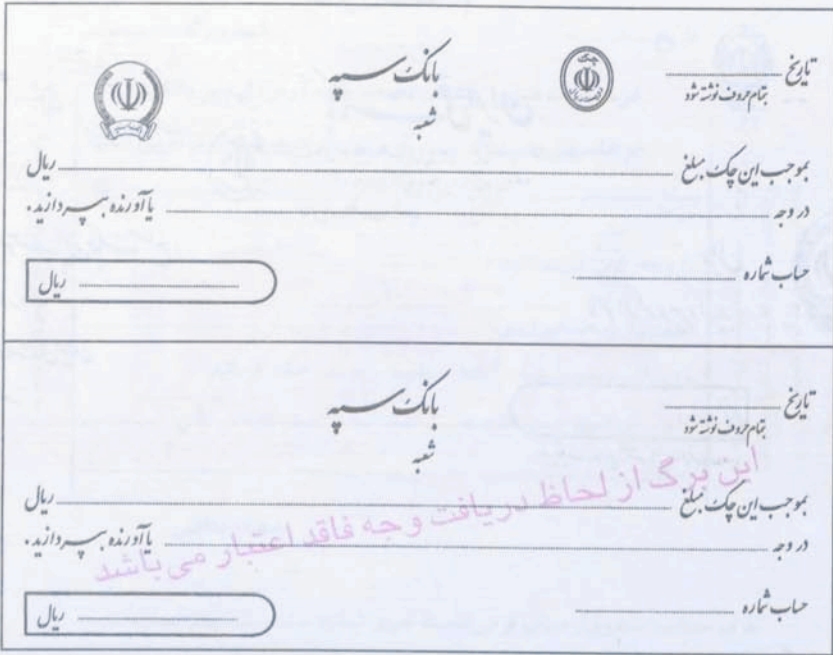 بانک سپه
تاریخ
بتمام حروف نوشته شود
شعبه
بموجب این چک مبلغ ریال
در وجه یا آورنده بپردازید.
حساب شماره
ریال
بانک سپه
تاریخ
بتمام حروف نوشته شود
شعبه
این برگ از لحاظ دریافت وجه فاقد اعتبار می باشد
بموجب این چک مبلغ ریال
در وجه یا آورنده بپردازید.
حساب شماره
ریال